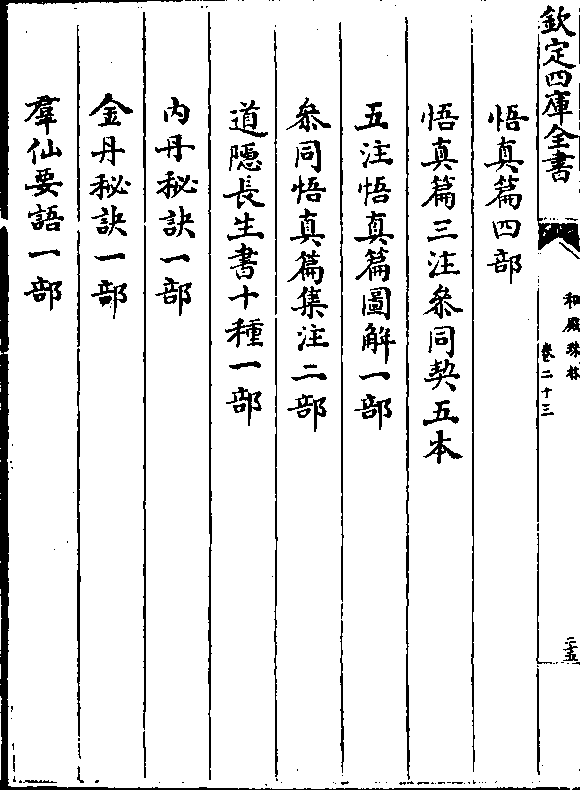 欽定四庫全書
秘殿珠林
卷二十三
二五
悟真篇四部
悟真篇三注叅同契五本
五注悟真篇圖解一部
叅同悟真篇集注二部
道隱長生書十種一部
内丹秘訣一部
金丹秘訣一部
羣仙要語一部